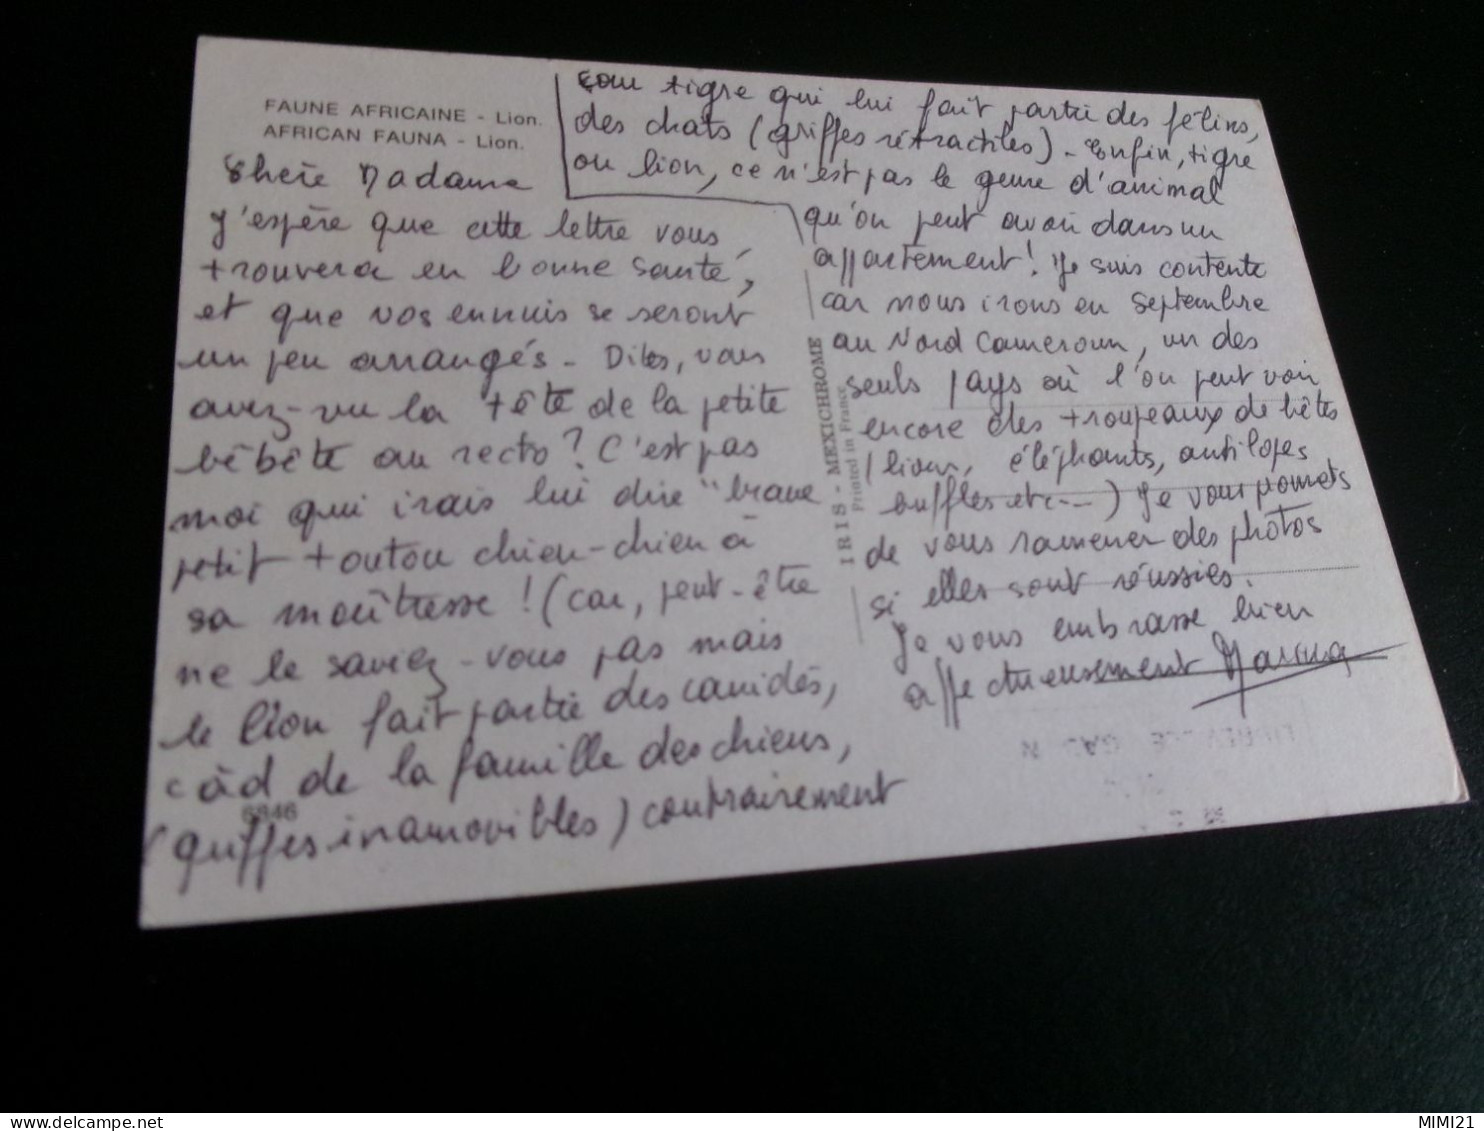 FAUNE AFRICAINE - Lion.
AFRICAN FAUNA - Lion.
Chère Madame
J'espère que cette lettre vous
trouvera en bonne santé,
et que vos ennuis se seront
un peu arrangés - Dites, vous
avez-vu la tête de la petite
bêbête au recto ? C'est pas
moi qui irais lui dire "brave
petit toutou chien-chien à
sa maîtresse ! (Car, peut-être
ne le saviez-vous pas mais
le lion fait partie des canidés,
càd de la famille des chiens,
(griffes inamovibles) contrairement
6846
tigre qui lui fait partie des félins,
des chats (griffes rétractiles) - Enfin, tigre
ou lion, ce n'est pas le genre d'animal
qu'on peut avoir dans un
appartement ! Je suis contente
car nous irons en septembre
au Nord Cameroun, un des
seuls pays où l'on peut voir
encore des troupeaux de bêtes
(lions, éléphants, antilopes
buffles etc --) Je vous promets
de vous ramener des photos
si elles sont réussies.
Je vous embrasse bien
affectueusement
IRIS - MEXICHROME
Printed in France
LIBREVILLE GABON
MIMI21